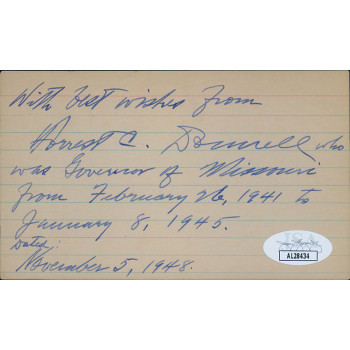 With best wishes from
Forrest C. Donnell who
was Governor of Missouri
from February 26, 1941 to
January 8, 1945.
Dated:
November 5, 1948.
JSA
AL28434